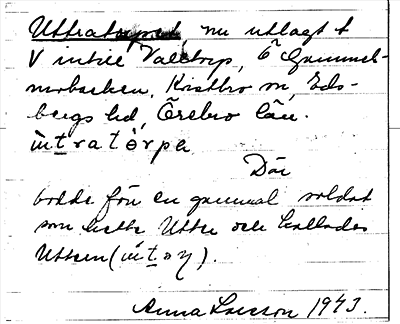 Uttratorpet, nu utlagt t
V intill Valltorp, Ö Gammel-
, Kristbro sn, Eds-
bergs hd, Örebro län.
ùtratòrpe
Där
bodde förr en gammal soldat
som hette Utter och kallades
Uttern (ùtəṇ).
Anna Larsson 1943.